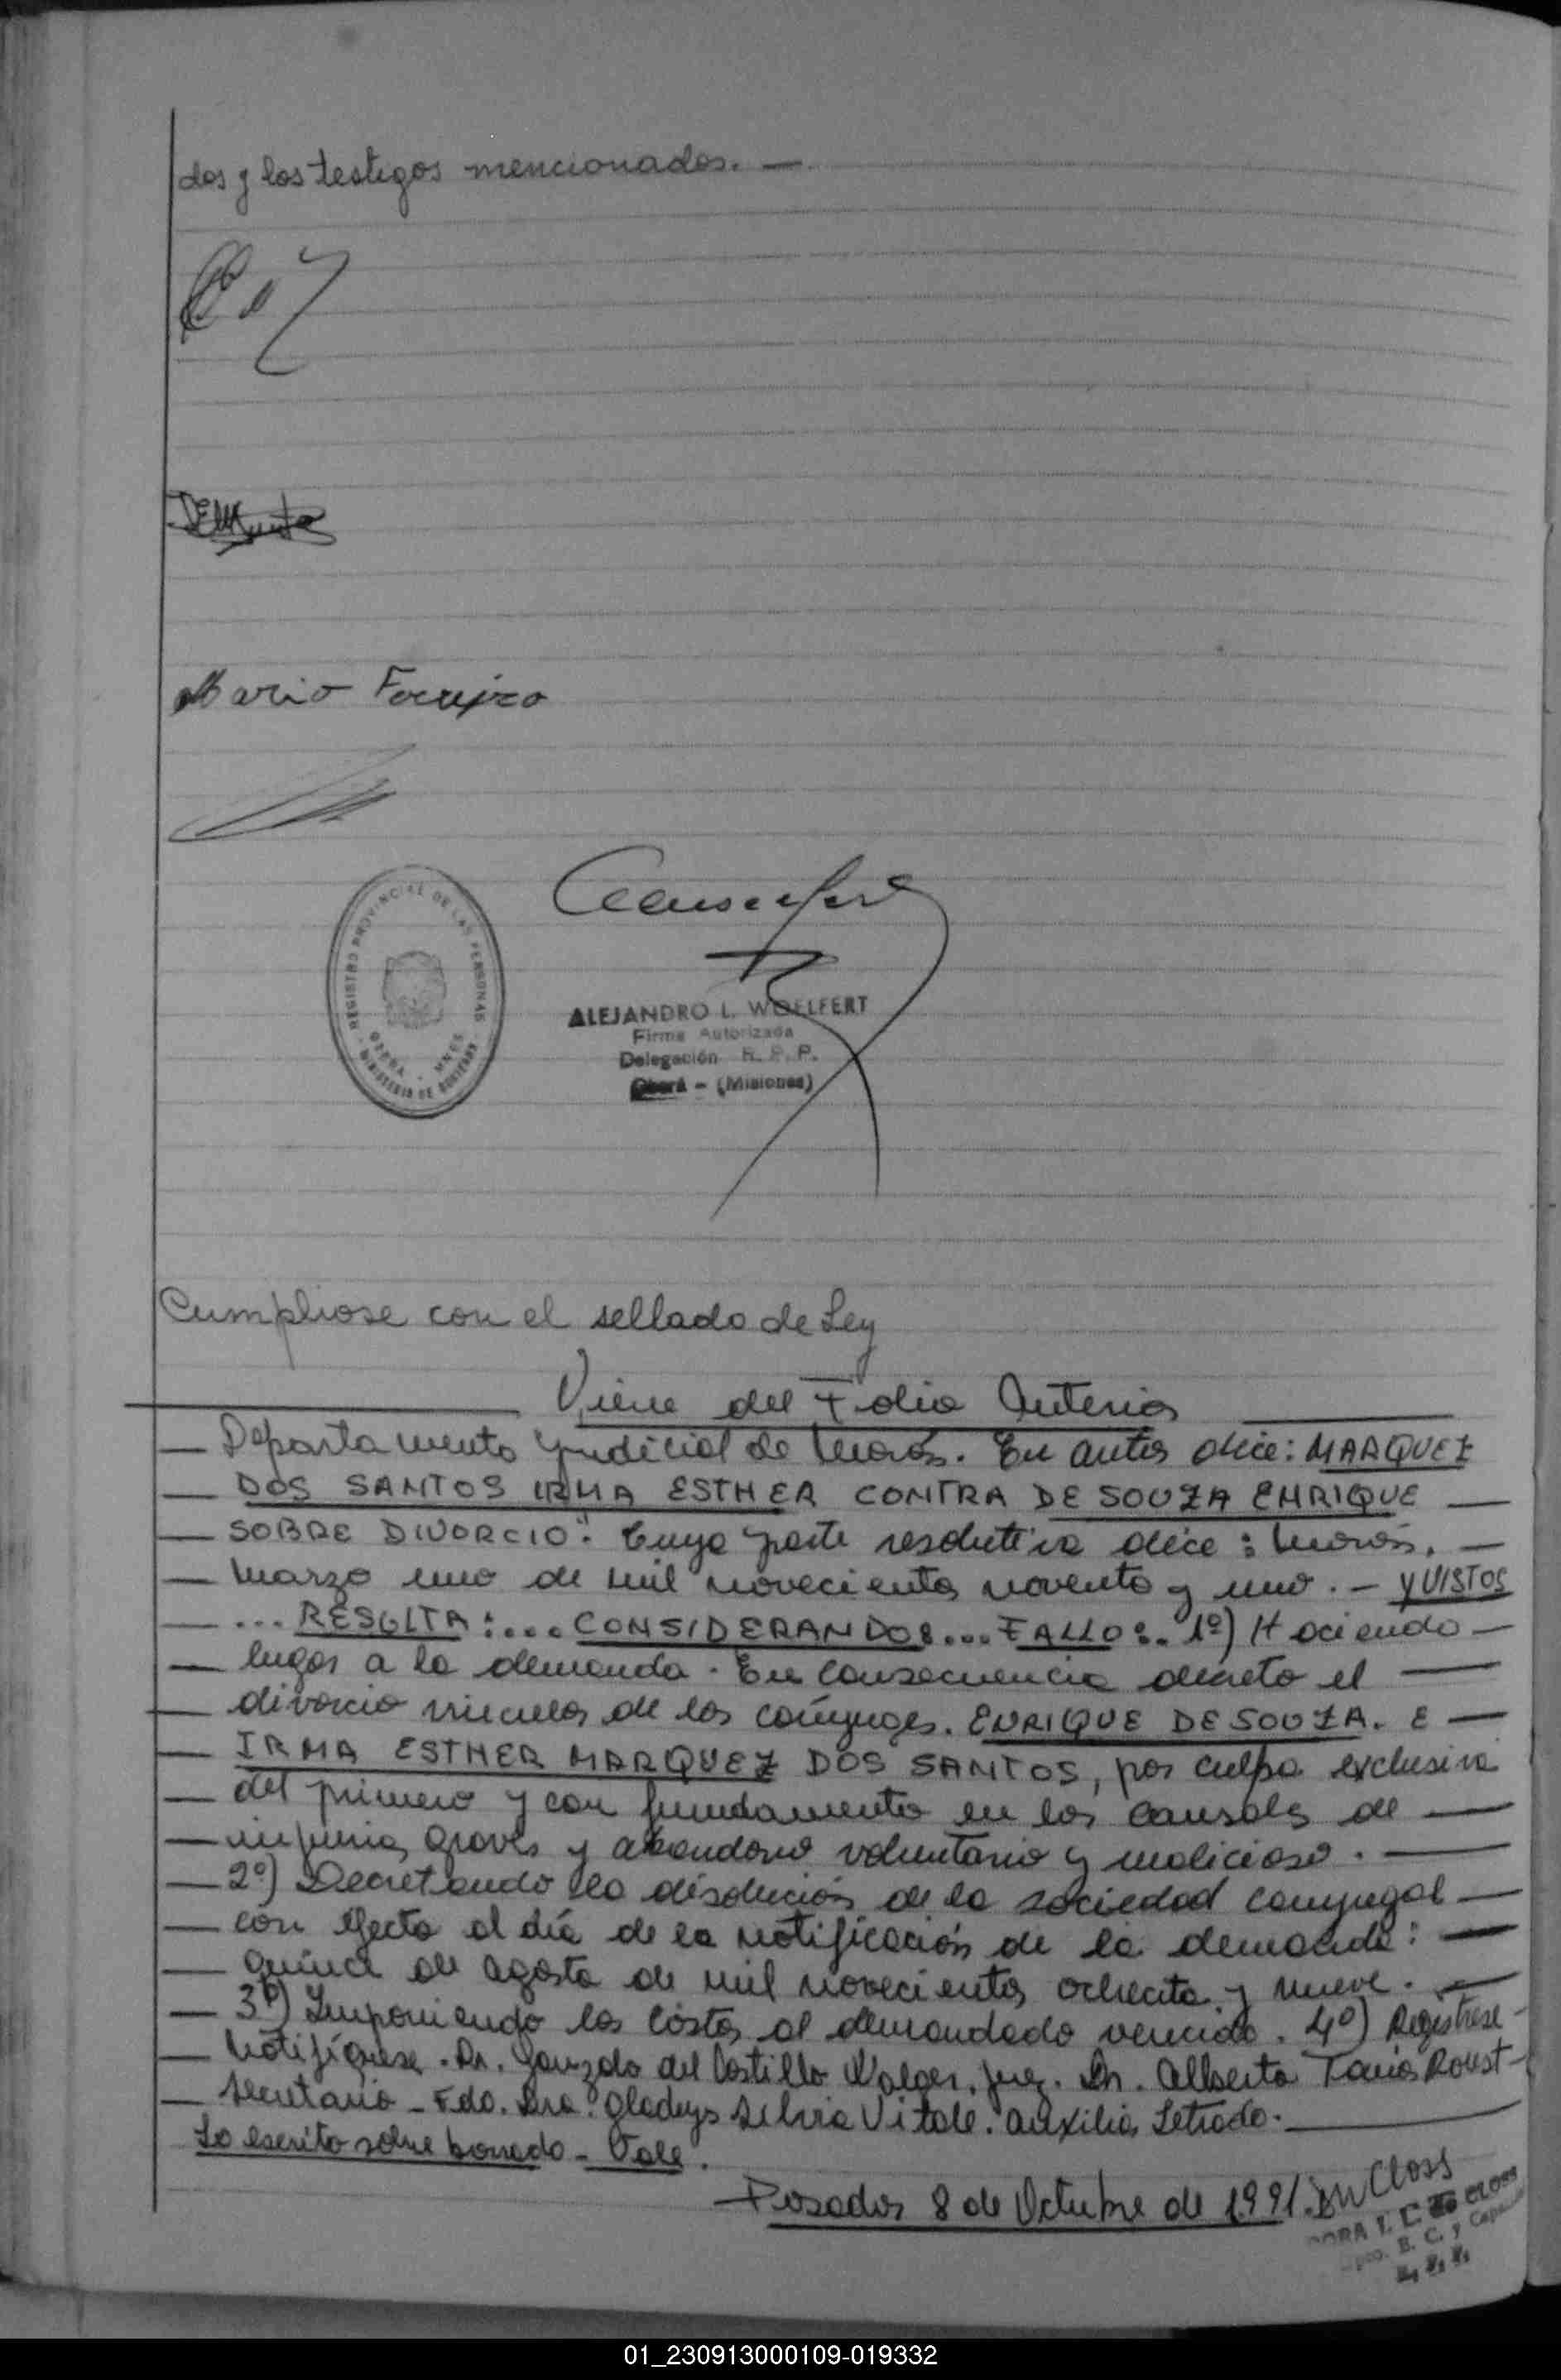 dos y los testigos mencionados. —
Mario Ferreira
REGISTRO PROVINCIAL DE LAS PERSONAS
OBERA - MNES
MINISTERIO DE GOBIERNO
ALEJANDRO L. WOELFERT
Firma Autorizada
Delegación R. P. P.
Oberá - (Misiones)
Cumpliose con el sellado de Ley
Viene del Folio Anterior
— Departamento Judicial de Morón. En autos dice: MARQUEZ
— DOS SANTOS IRMA ESTHER CONTRA DE SOUZA ENRIQUE —
— SOBRE DIVORCIO". Cuya parte resolutiva dice: Morón, —
— Marzo uno de mil novecientos noventa y uno. — Y VISTOS
— ... RESULTA:.... CONSIDERANDO:... FALLO:. 1º) Haciendo —
— lugar a la demanda. En consecuencia decreto el —
— divorcio vincular de los cónyuges. ENRIQUE DE SOUZA. E —
— IRMA ESTHER MARQUEZ DOS SANTOS, por culpa exclusiva
— del primero y con fundamento en las causales de —
— injurias graves y abandono voluntario y malicioso. —
— 2º) Decretando la disolución de la sociedad conyugal —
— con efecto al día de la notificación de la demanda: —
— quince de agosto de mil novecientos ochenta y nueve. —
— 3º) Imponiendo las costas al demandado vencido. 4º) Regístrese —
— Notifíquese. Dr. Gonzalo del Castillo Juez. Dr. Alberto
— Secretario - Fdo. Dra. Gladys Silvia Vitale. Auxiliar Letrado. —
Lo escrito sobre borrado - Vale.
Posadas 8 de Octubre de 1991.
CLOSS